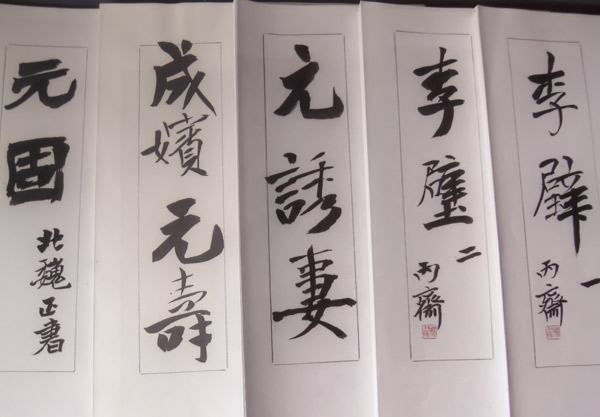 李辟一
丙齋
李璧二
丙齋
元誘妻
成嬪元壽
元固
北魏正書